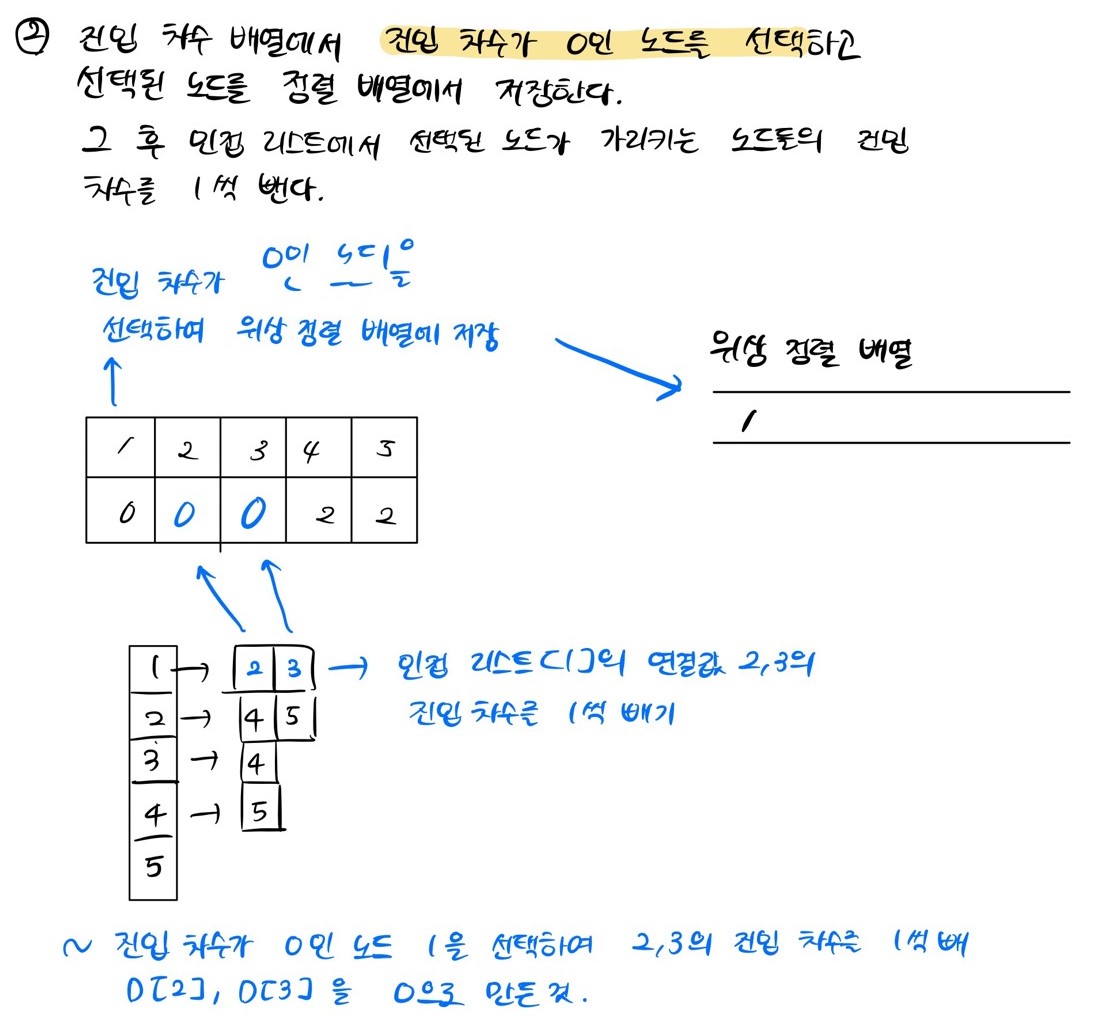 ② 진입 차수 배열에서 진입 차수가 0인 노드를 선택하고
선택된 노드를 정렬 배열에서 저장한다.
그 후 인접 리스트에서 선택된 노드가 가리키는 노드들의 진입
차수를 1씩 뺀다.
진입 차수가 0인 노드1을
선택하여 위상 정렬 배열에 저장
위상 정렬 배열
1
1 2 3 4 5
0 0 0 2 2
1 → 2 3 → 인접 리스트[1]의 연결값 2,3의
진입 차수를 1씩 빼기
2 → 4 5
3 → 4
4 → 5
5
~ 진입 차수가 0인 노드 1을 선택하여 2,3의 진입 차수를 1씩 빼
D[2], D[3]을 0으로 만든 것.